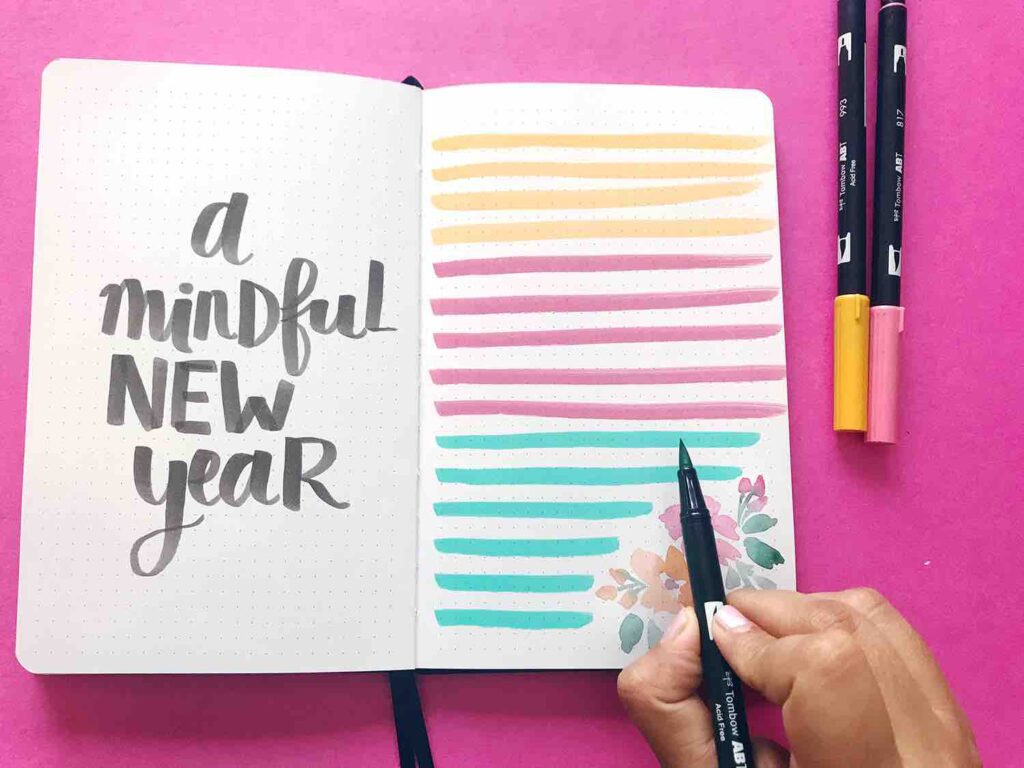 a
mindful
NEW
year
993
Tombow ABT
Acid Free
817
Tombow ABT
Tombow ABT
Acid Free